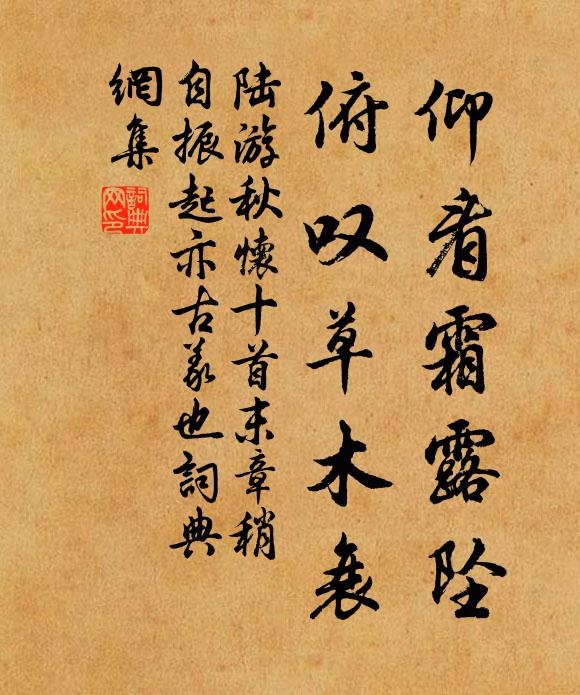 仰看霜露坠
俯叹草木衰
陆游秋懷十首末章稍
自振起亦古義也詞典
網集
詞典
网印